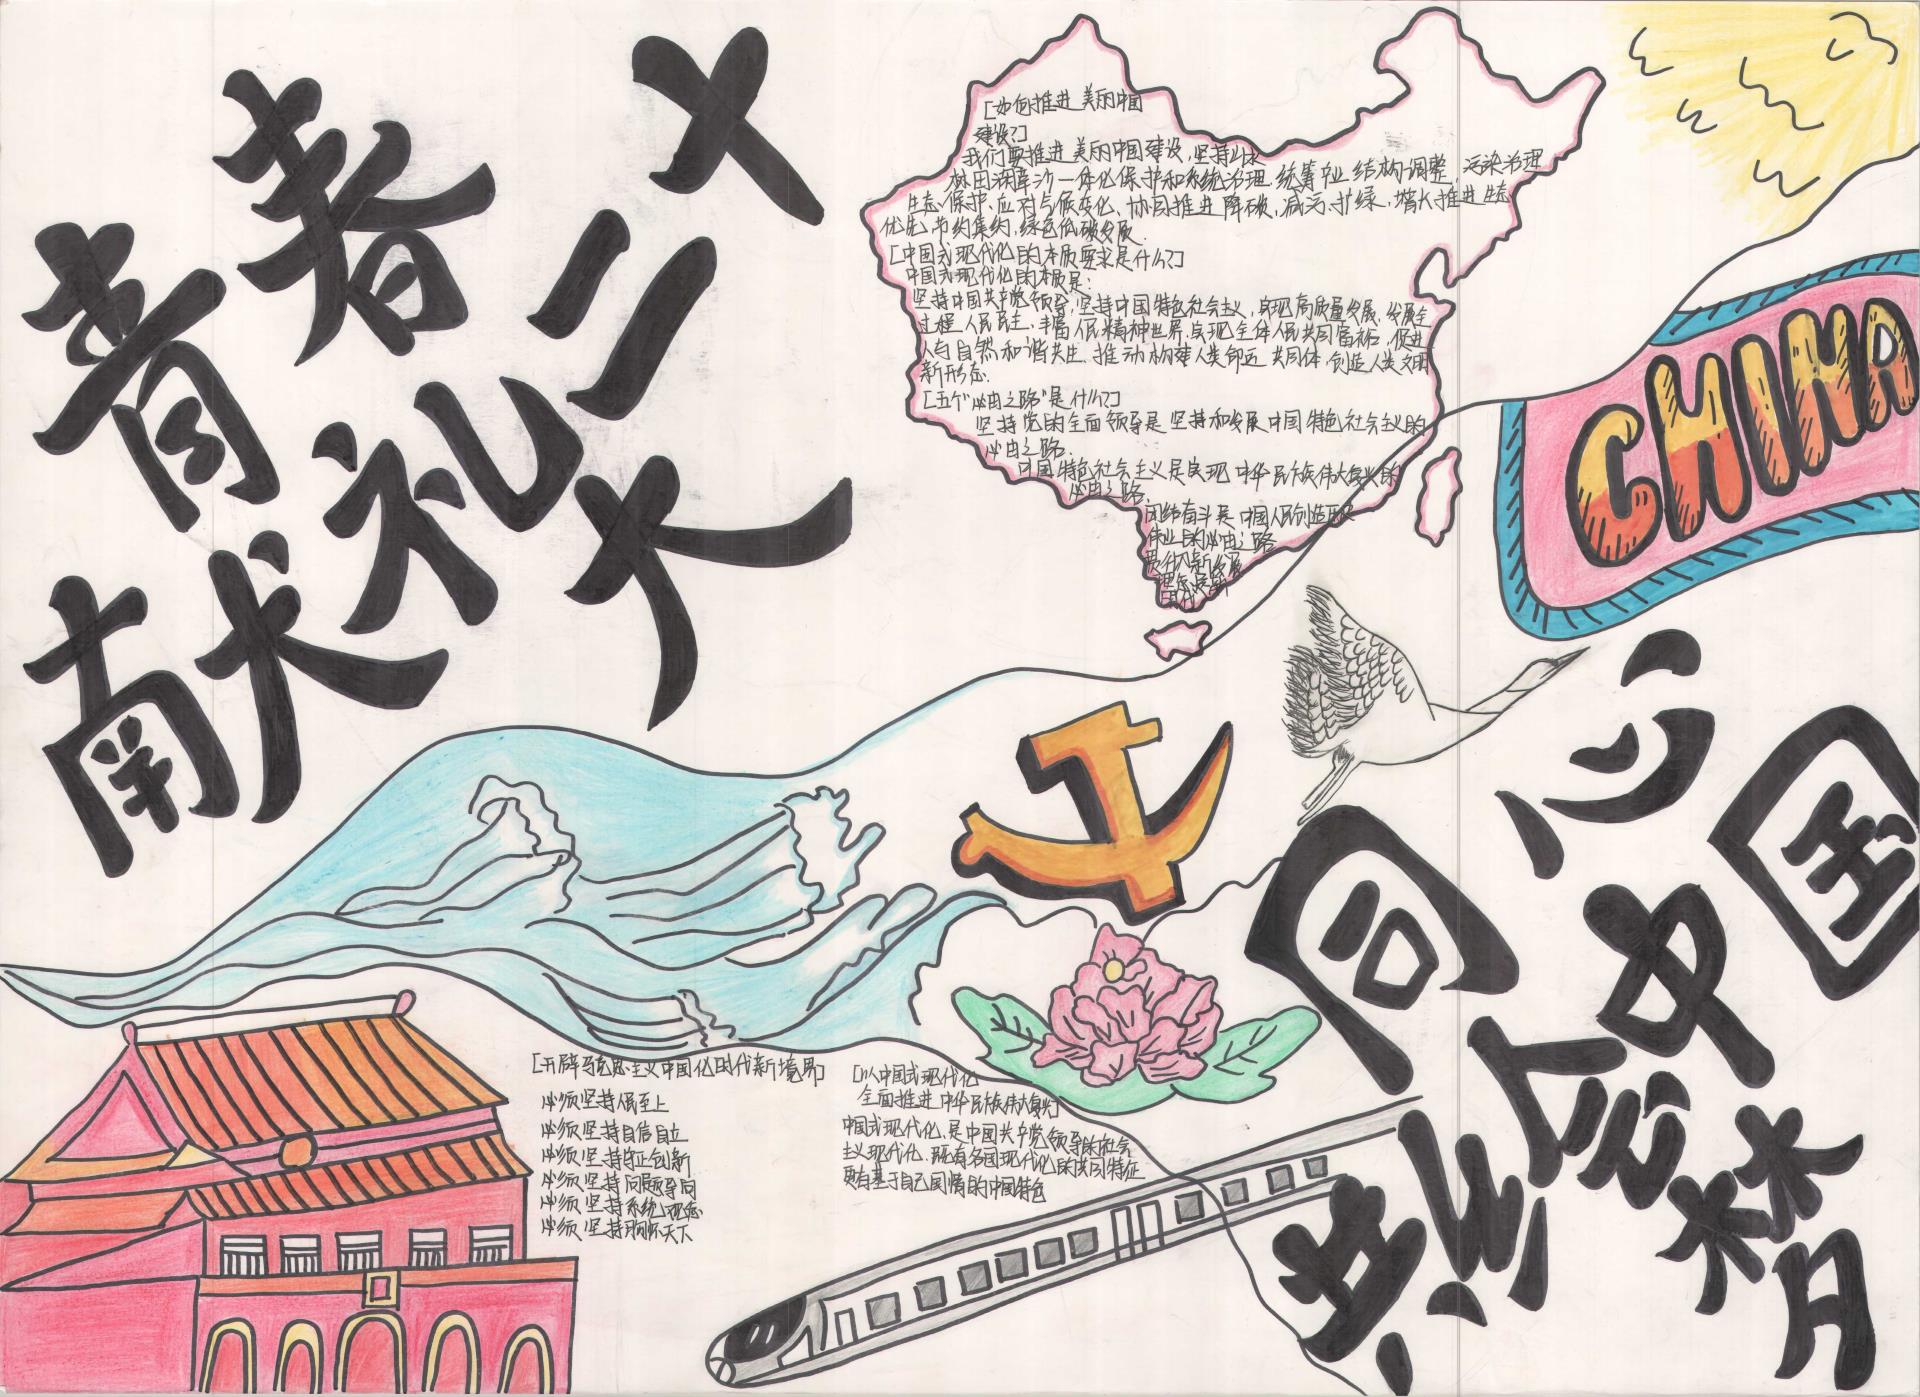 青春
献礼二十
大
[如何推进美丽中国
建设?]
我们要推进美丽中国建设,坚持山水
林田湖草沙一体化保护和系统治理.统筹产业结构调整,污染治理
生态保护,应对气候变化,协同推进降碳,减污,扩绿,增长推进生态
优先,节约集约,绿色低碳发展.
[中国式现代化的本质要求是什么?]
中国式现代化的本质是:
坚持中国共产党领导,坚持中国特色社会主义,实现高质量发展,发展全
过程人民民主,丰富人民精神世界,实现全体人民共同富裕,促进
人与自然和谐共生.推动构建人类命运共同体,创造人类文明
新形态.
[五个"必由之路"是什么?]
坚持党的全面领导是坚持和发展中国特色社会主义的
必由之路.
中国特色社会主义是实现中华民族伟大复兴的
必由之路.
团结奋斗是中国人民创造历史
伟业的必由之路
贯彻新发展
理念是新
时代
CHINA
同心
共绘中国
梦
[开辟马克思主义中国化时代新境界]
必须坚持人民至上
必须坚持自信自立
必须坚持守正创新
必须坚持问题导向
必须坚持系统观念
必须坚持胸怀天下
[以中国式现代化
全面推进中华民族伟大复兴]
中国式现代化,是中国共产党领导的社会
主义现代化,既有各国现代化的共同特征
更有基于自己国情的中国特色